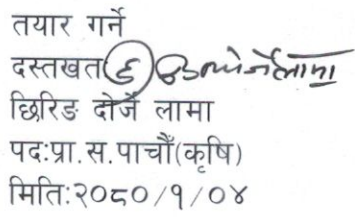 तयार गर्ने
दस्तखत
छिरिङ दोर्जे लामा
पद:प्रा.स.पाचौं(कृषि)
मिति:२०८०/१/०४